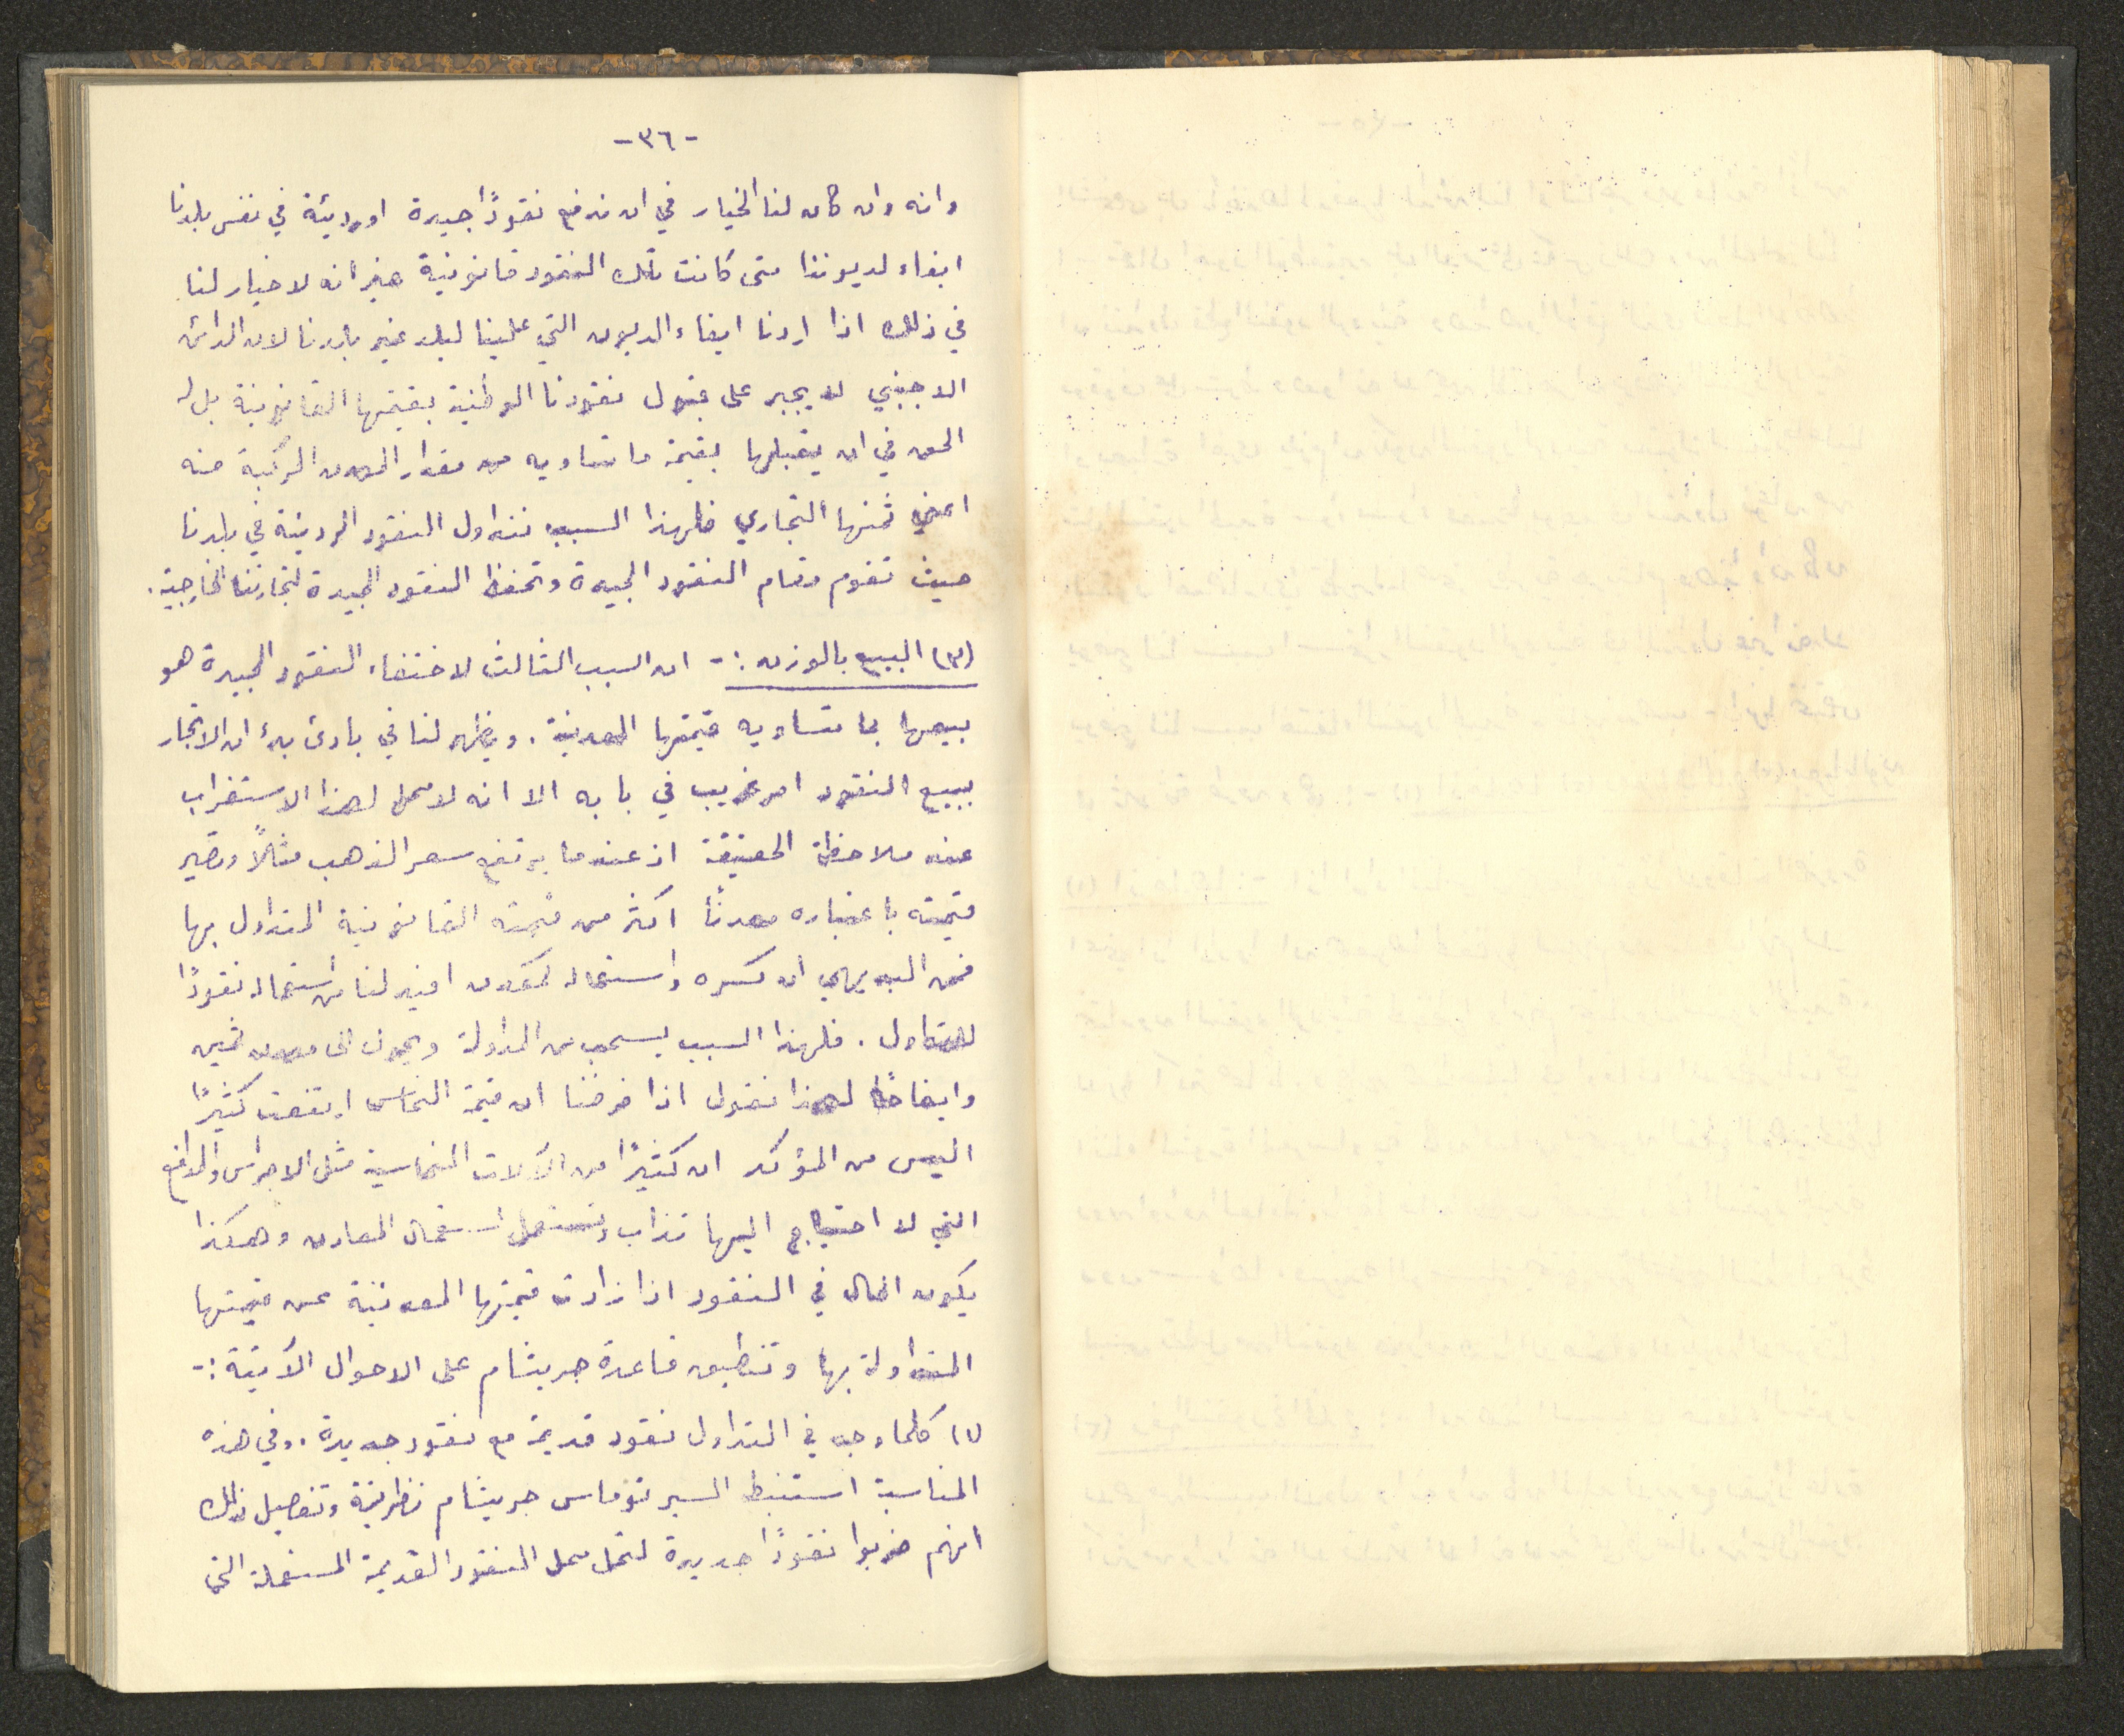 -٣٦-
وانه وان كان لنا الخيار في ان ندفع نقودًا جيدة او رديئة في نفس بلدنا
ايفاء لديوننا متى كانت تلك النقود قانونية غير انه لا خيار لنا
في ذلك اذا اردنا ايفاء الديون التي علينا لبلد غير بلدنا لان الدائن
الاجنبي لا يجبر على قبول نقودنا الوطنية بقيمتها القانونية بل له
الحق في ان يقبلها بقيمة ما تساويه من مقدار المعدن المركبة منه
اعني ثمنها التجاري فلهذا السبب نتداول النقود الرديئة في بلدنا
حيث تقوم مقام النقود الجيدة وتحفظ النقود الجيدة لتجارتنا الخارجية.
(٣) البيع بالوزن :- ان السبب الثالث لاختفاء النقود الجيدة هو
بيعها بما تساويه قيمتها المعدنية. ويظهر لنا في بادئ بدء ان الاتجار
ببيع النقود امر غريب في بابه الا انه لا محل لهذا الاستغراب
عند ملاحظة الحقيقة اذ عندما يرتفع سعر الذهب مثلًا وتصير
قيمته باعتباره معدنًا اكثر من قيمته القانونية المتداول بها
فمن البديهي ان كسره واستعماله كمعدن افيد لنا من استعماله نقودًا
للتداول. فلهذا السبب يسحب من المداولة ويحول الى معدن ثمين
وايضاحًا لهذا نقول اذا فرضنا ان قيمة النحاس ارتفعت كثيرًا
اليس من المؤكد ان كثيرًا من الآلات النحاسية مثل الاجراس والمدافع
التي لا احتياج اليها تذاب وتستعمل استعمال المعادن وهكذا
يكون الحال في النقود اذا زادت قيمتها المعدنية عن قيمتها
المتداولة بها وتنطبق قاعدة جريشام على الاحوال الآتية :-
(١) كلما وجد في التداول نقود قديمة مع نقود جديدة. وفي هذه
المناسبة استنبط السير توماس جريشام نظريته وتفصيل ذلك
انهم ضربوا نقودًا جديدة لتحل محل النقود القديمة المستعملة التي